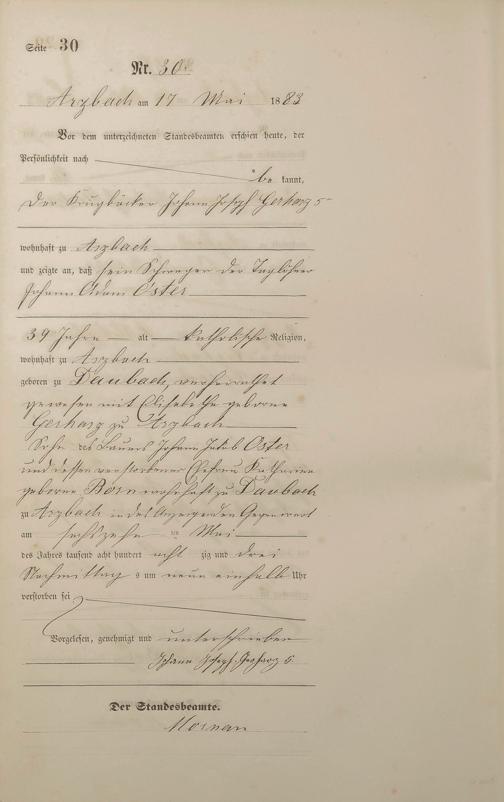 Seite 30
Nr. 30.
Arzbach am 17 Mai 1883
Vor dem unterzeichneten Standesbeamten erschien heute, der
Persönlichkeit nach
be kannt,
der Krugbäcker Johann Joseph Gerharz 5-
wohnhaft zu Arzbach
und zeigte an, daß sein Schwager der Taglöhner
Johann Adam Oster
39 Jahre alt katholische Religion,
wohnhaft zu Arzbach
geboren zu Daubach, verheirathet
gewesen mit Elisabetha geborne
Gerharz zu Arzbach
Sohn des Bauers Johann Jakob Oster
und dessen verstorbener Ehefrau Katharina
geborne Born wohnhaft zu Daubach
zu Arzbach in des Anzeigenden Gegenwart
am sechszehn ten Mai
des Jahres tausend acht hundert acht zig und drei
Nachmittag s um neun einhalb Uhr
verstorben sei
Vorgelesen, genehmigt und unterschrieben
Johann Joseph Gerharz 5.
Der Standesbeamte.